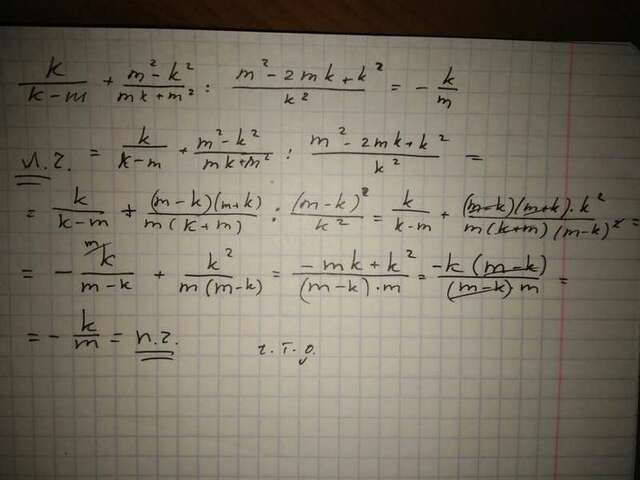 k/(k-m) + (m²-k²)/(mk+m²) : (m²-2mk+k²)/k² = -k/m
л.ч. = k/(k-m) + (m²-k²)/(mk+m²) : (m²-2mk+k²)/k² =
= k/(k-m) + (m-k)(m+k)/(m(k+m)) : (m-k)²/k² = k/(k-m) + (m-k)(m+k)·k²/(m(k+m)(m-k)²) =
= -k^m/(m-k) + k²/(m(m-k)) = (-mk+k²)/((m-k)·m) = -k(m-k)/((m-k)m) =
= -k/m = п.ч. ч.т.д.